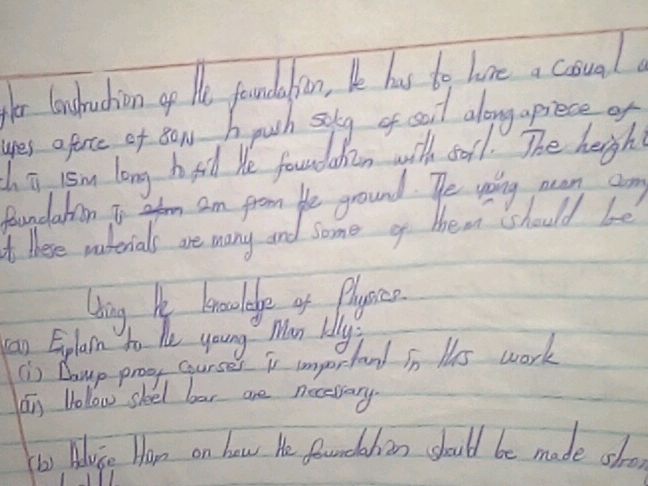 After Construction of the foundation, he has to hire a casual
uses a force of 80N to push 50kg of soil along a piece of
ch is 15m long to fill the foundation with soil. The height
foundation is 2m from the ground. The young man
t these materials are many and some of them should be
Using the knowledge of Physics.
(a) Explain to the young Man Why:
(i) Damp proof courses is important in this work
(ii) Hollow steel bar are necessary.
(b) Advise Him on how the foundation should be made stron